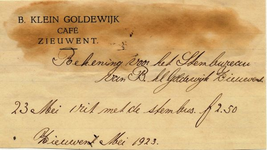 B. KLEIN GOLDEWIJK
CAFÉ
ZIEUWENT.
Rekening voor het Stembureau
van B. Kl Goldewijk Zieuwent
23 Mei rit met de stembus. f 2.50
Zieuwent, Mei 1923.